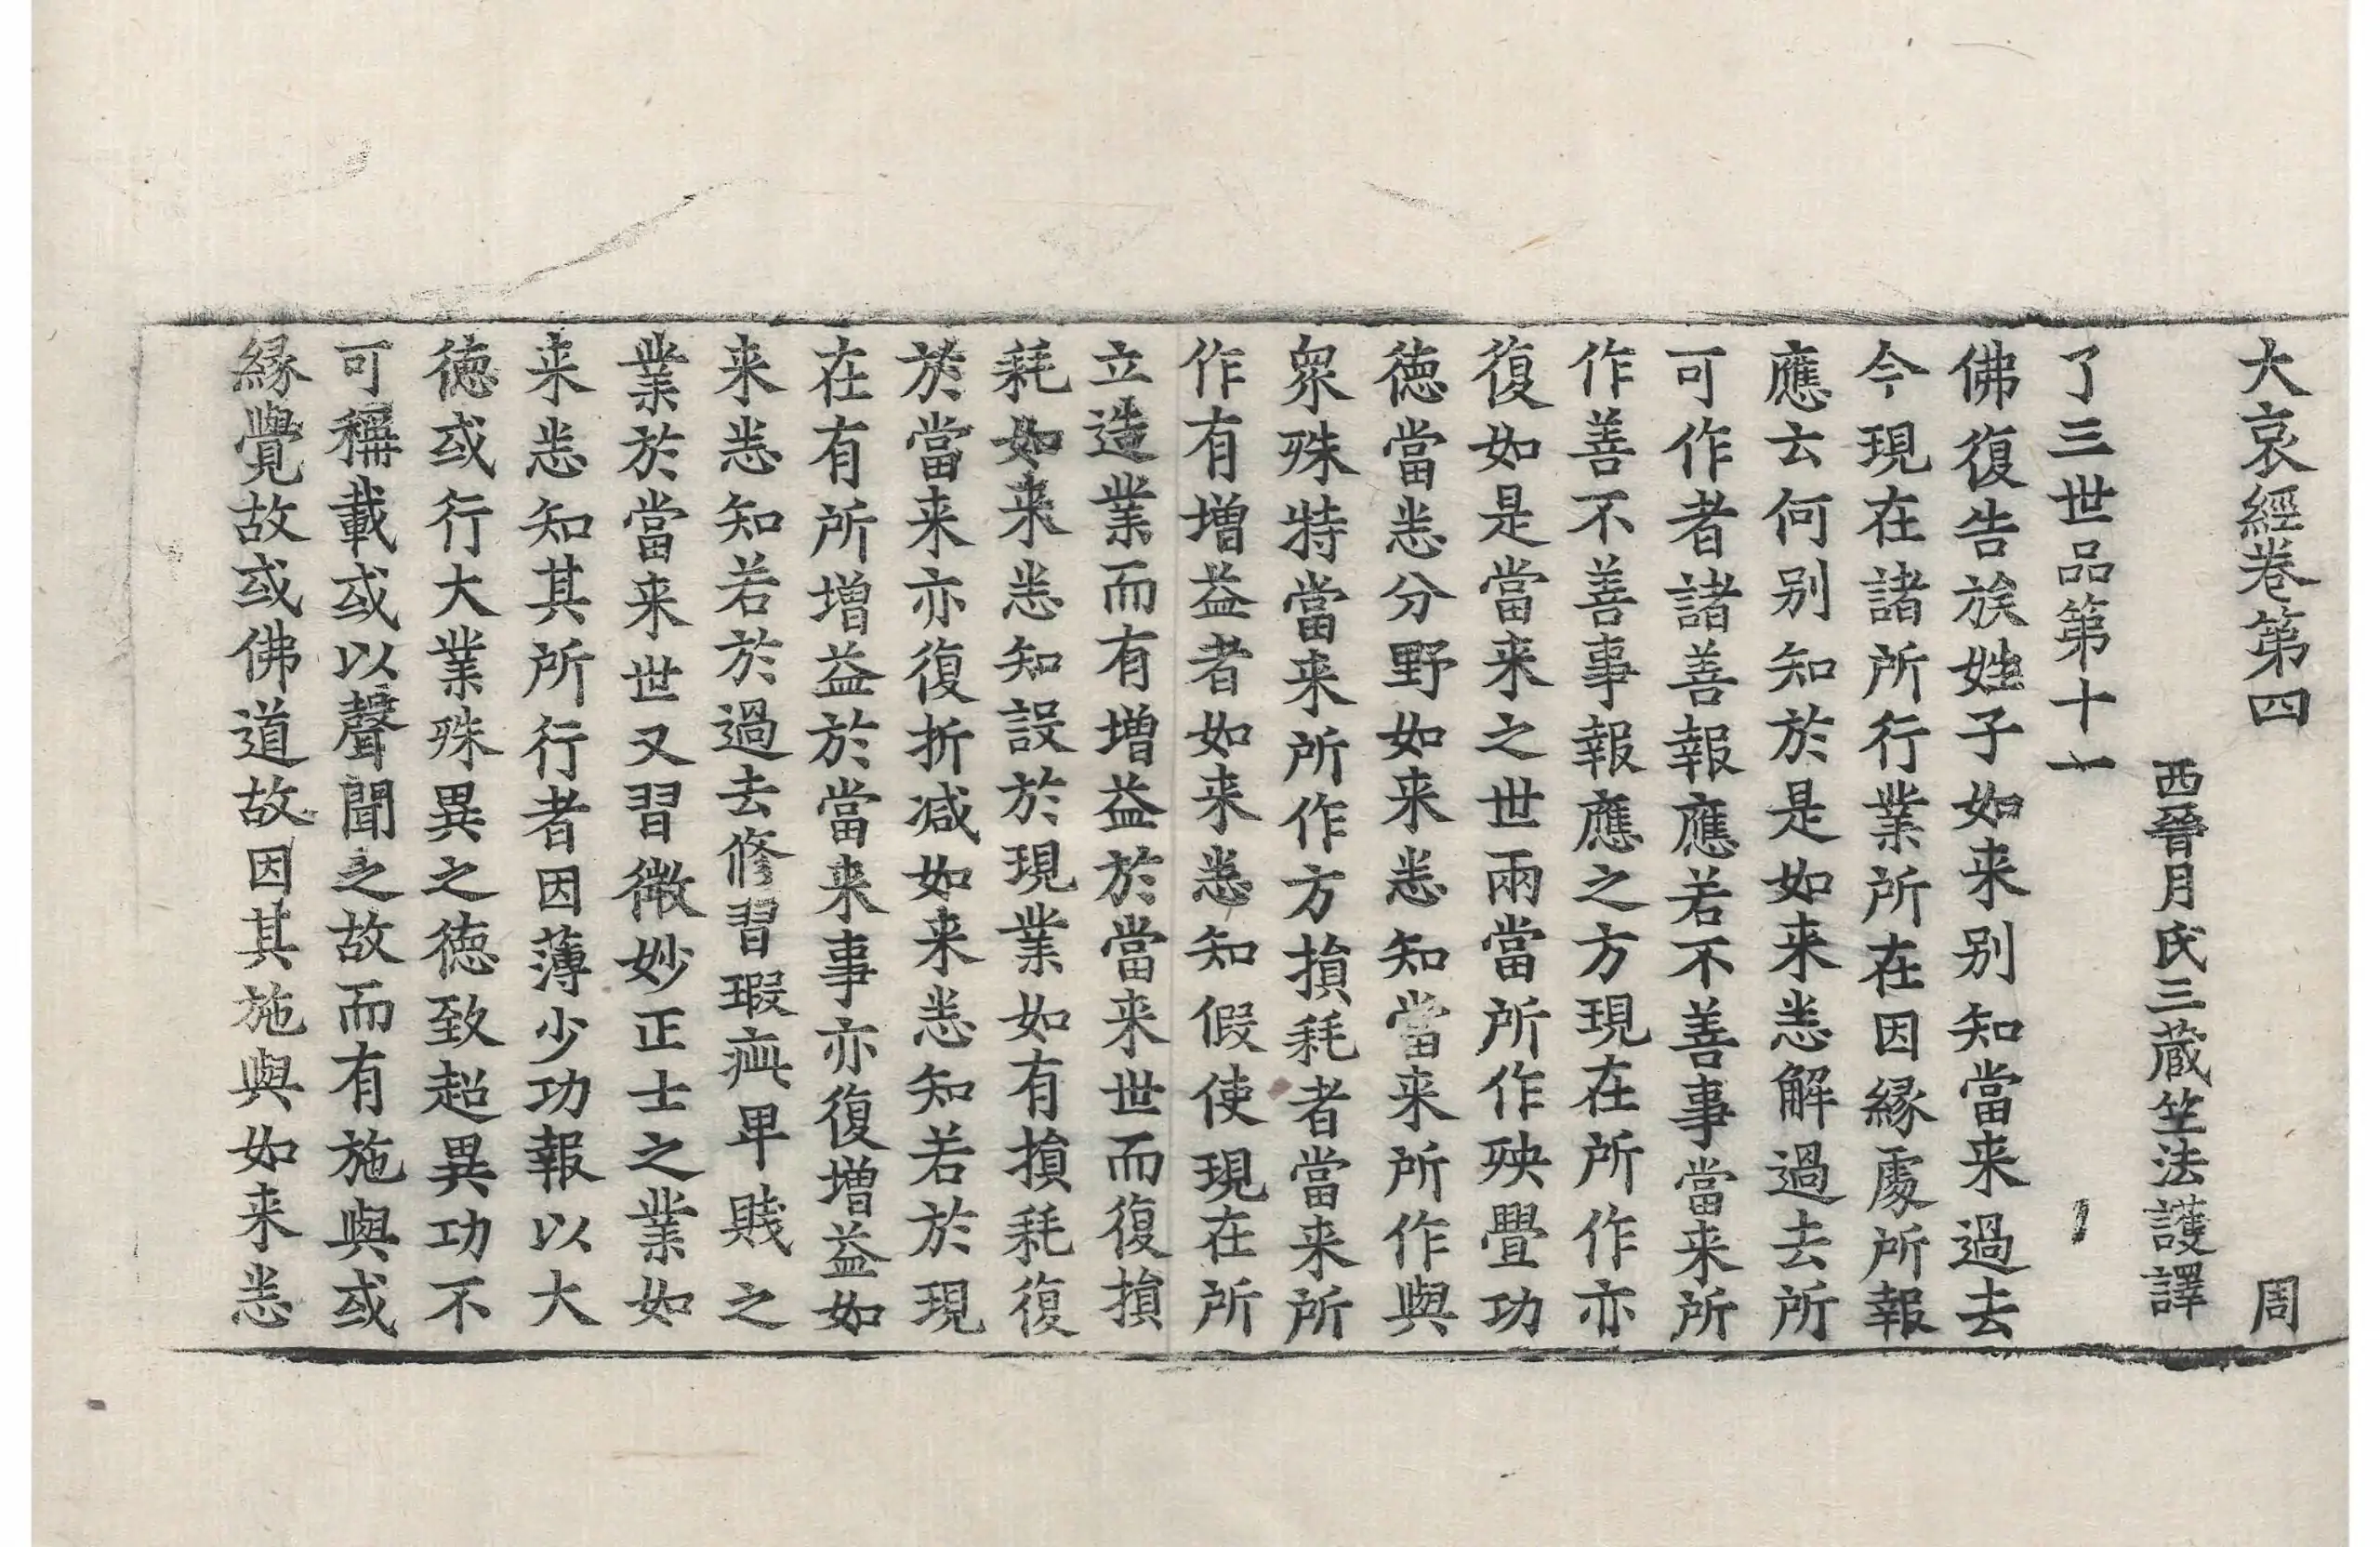 大哀經卷第四 周
西晉月氏三藏竺法護譯
了三世品第十一
佛復告族姓子如来别知當来過去
今現在諸所行業所在因緣處所報
應云何别知於是如来悉解過去所
可作者諸善報應若不善事當来所
作善不善事報應之方現在所作亦
復如是當来之世兩當所作殃舋功
德當悉分野如来悉知當来所作與
衆殊特當来所作方損耗者當来所
作有增益者如来悉知假使現在所
立造業而有增益於當来世而復損
耗如来悉知設於現業如有損耗復
於當来亦復折减如来悉知若於現
在有所增益於當来事亦復增益如
来悉知若於過去修習瑕疵卑賤之
業於當来世又習微妙正士之業如
来悉知其所行者因薄少功報以大
德或行大業殊異之德致超異功不
可稱載或以聲聞之故而有施與或
緣覺故或佛道故因其施與如来悉